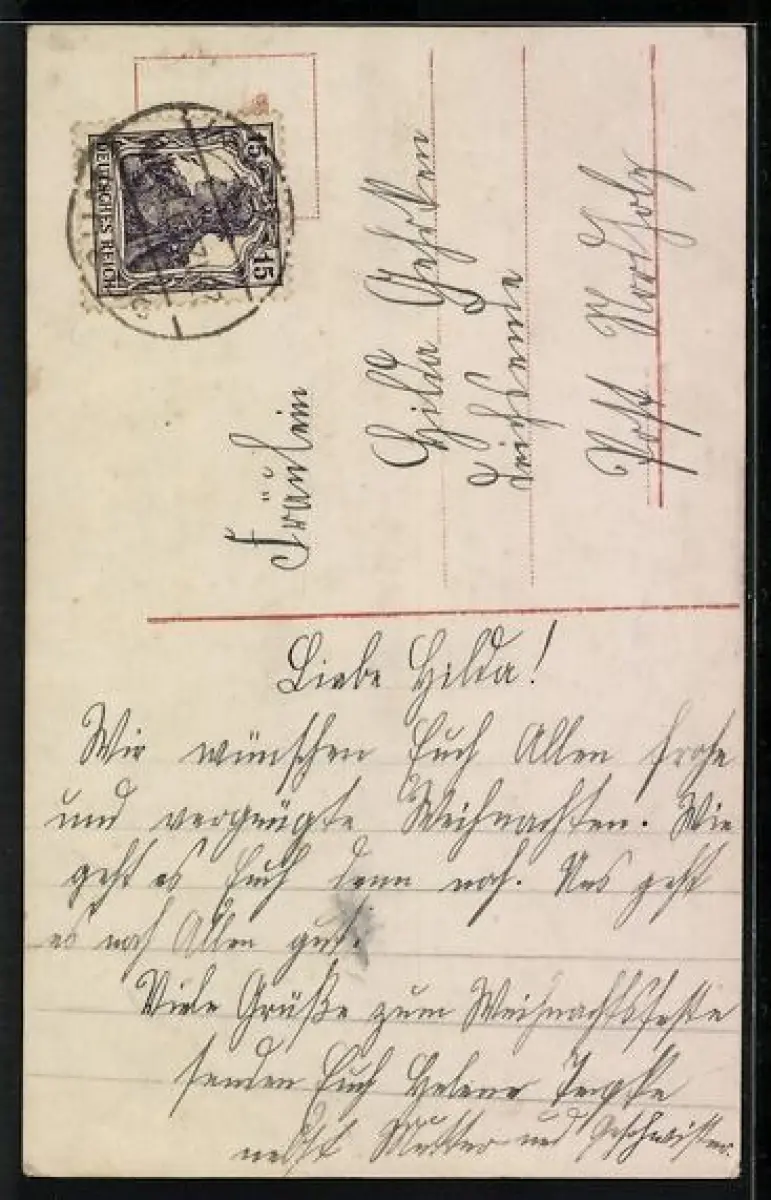 15 15
DEUTSCHES REICH
Fräulein
Hilda
Deichende
Post Nordholz
Liebe Hilda!
Wir wünschen Euch Allen frohe
und vergnügte Weihnachten. Wie
geht es Euch denn noch. Uns geht
es noch Allen gut.
Viele Grüße zum Weihnachtsfeste
senden Euch Helene
nebst Mutter und Geschwister.